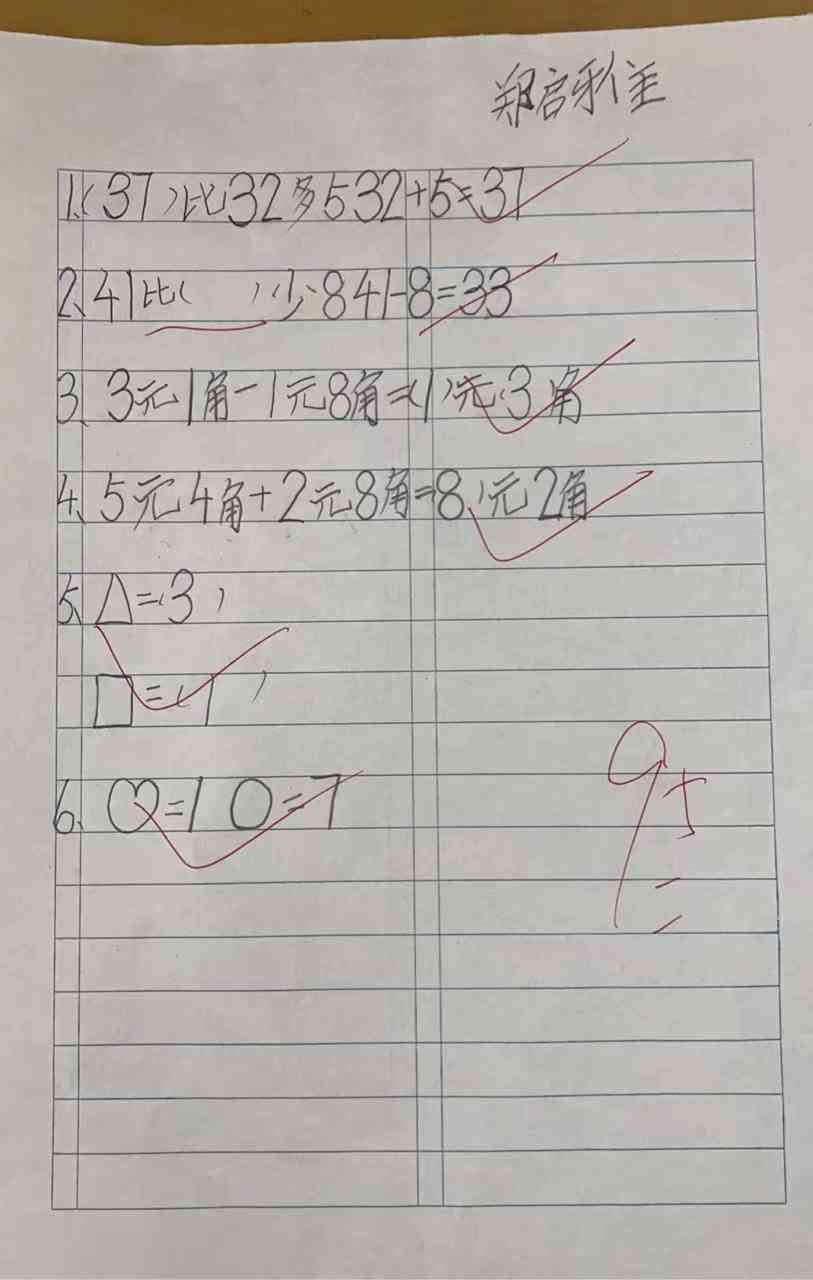 郑启
1、(37)比32多5 32+5=37
2、41比( )少8 41-8=33
3、3元1角-1元8角=(1)元(3)角
4、5元4角+2元8角=(8)元2角
5、△=(3)
□=(1)
6、♡=1 ○=7
95